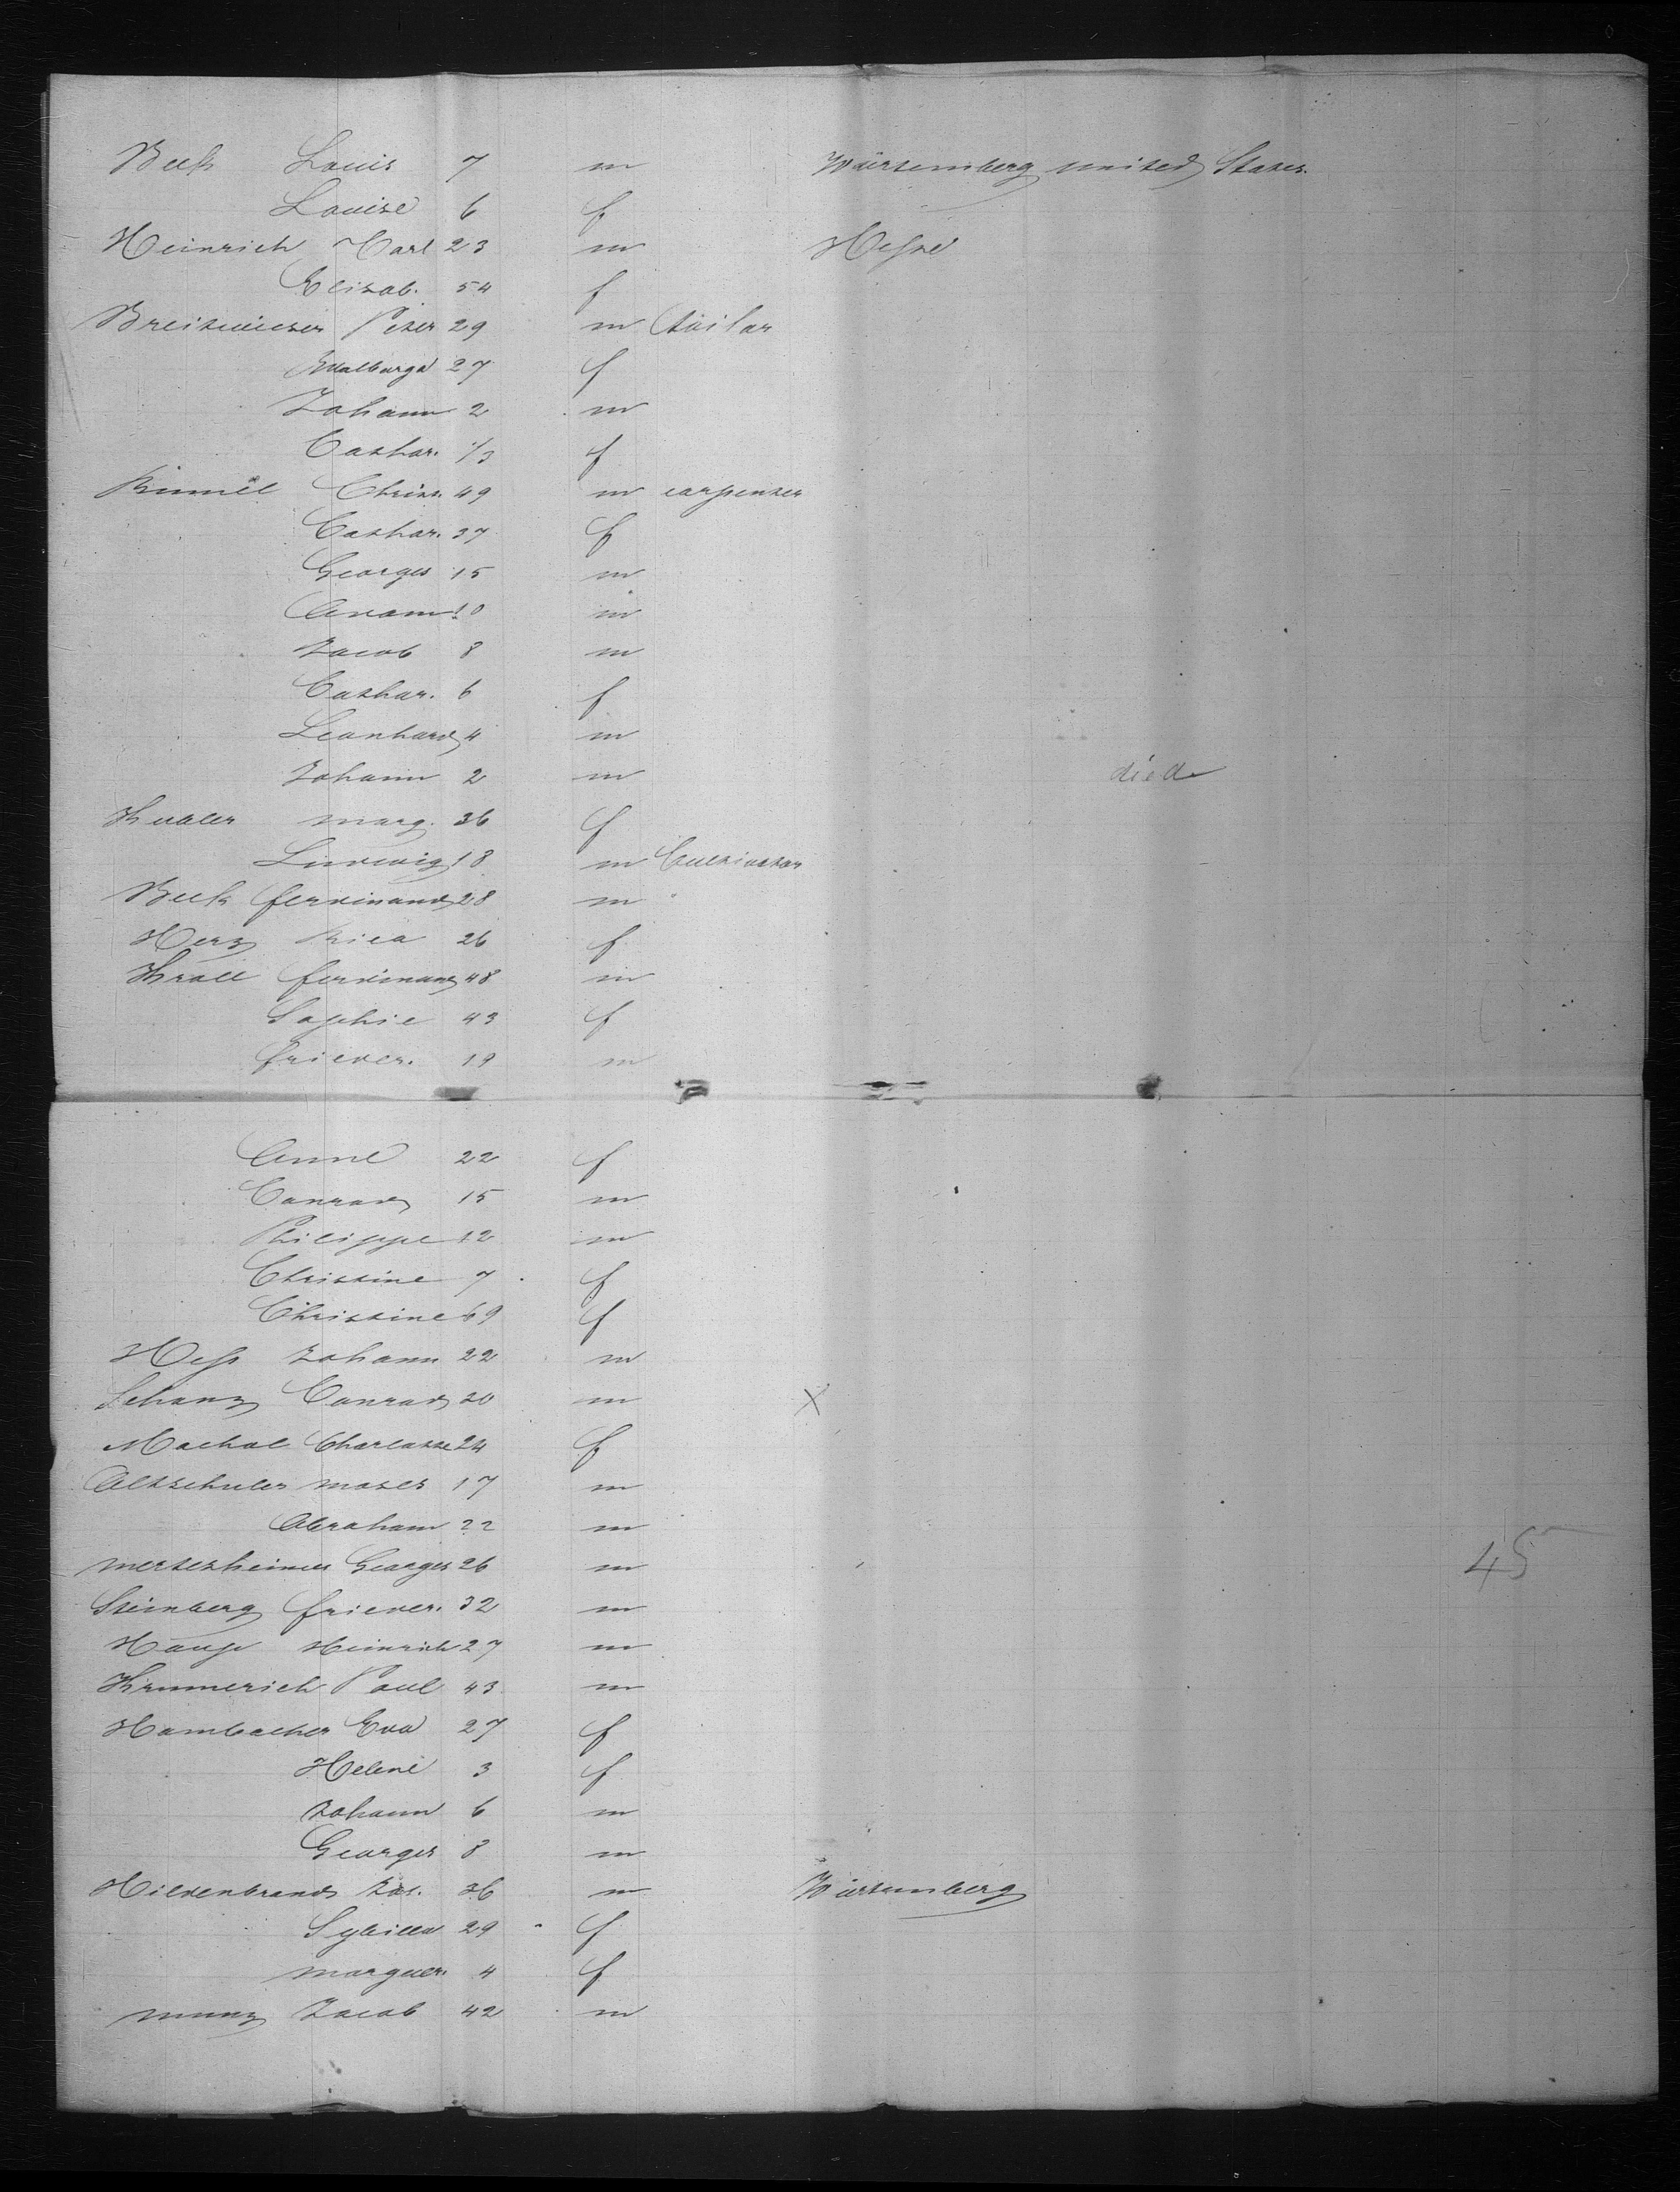 Beck Louis 7 m Würtemberg united States.
Louise 6 f
Heinrich Carl 23 m Hesse
Elisab. 54 f
Breitwieser Peter 29 m tailor
Walburga 27 f
Johann 2 m
Cathar. 1/3 f
Rimmel Christ. 49 m carpenter
Cathar. 37 f
Georges 15 m
Adam 10 m
Jacob 8 m
Cathar. 6 f
Leonhard 4 m
Johann 2 m died
Kubler marg. 36 f
Ludwig 18 m Cultivator
Beck ferdinand 28 m "
Herz Rica 26 f
Kroll ferdinand 48 m
Sophie 43 f
frieder. 19 m
Anne 22 f
Conrad 15 m
Philippe 12 m
Christine 7 f
Christine 69 f
Hess Johann 22 m
Schanz Conrad 20 m X
Machol Charlotte 24 f
Altschuler moses 17 m
Abraham 22 m
mertesheimer Georges 26 m 45
Steinberg frieder. 32 m
Haup Heinrich 27 m
Krumerich Paul 43 m
Hambacher Eva 27 f
Helene 3 f
Johann 6 m
Georges 8 m
Hildenbrand Jos. 36 m Würtemberg
Sybilla 29 f
marguer. 4 f
munz Jacob 42 m